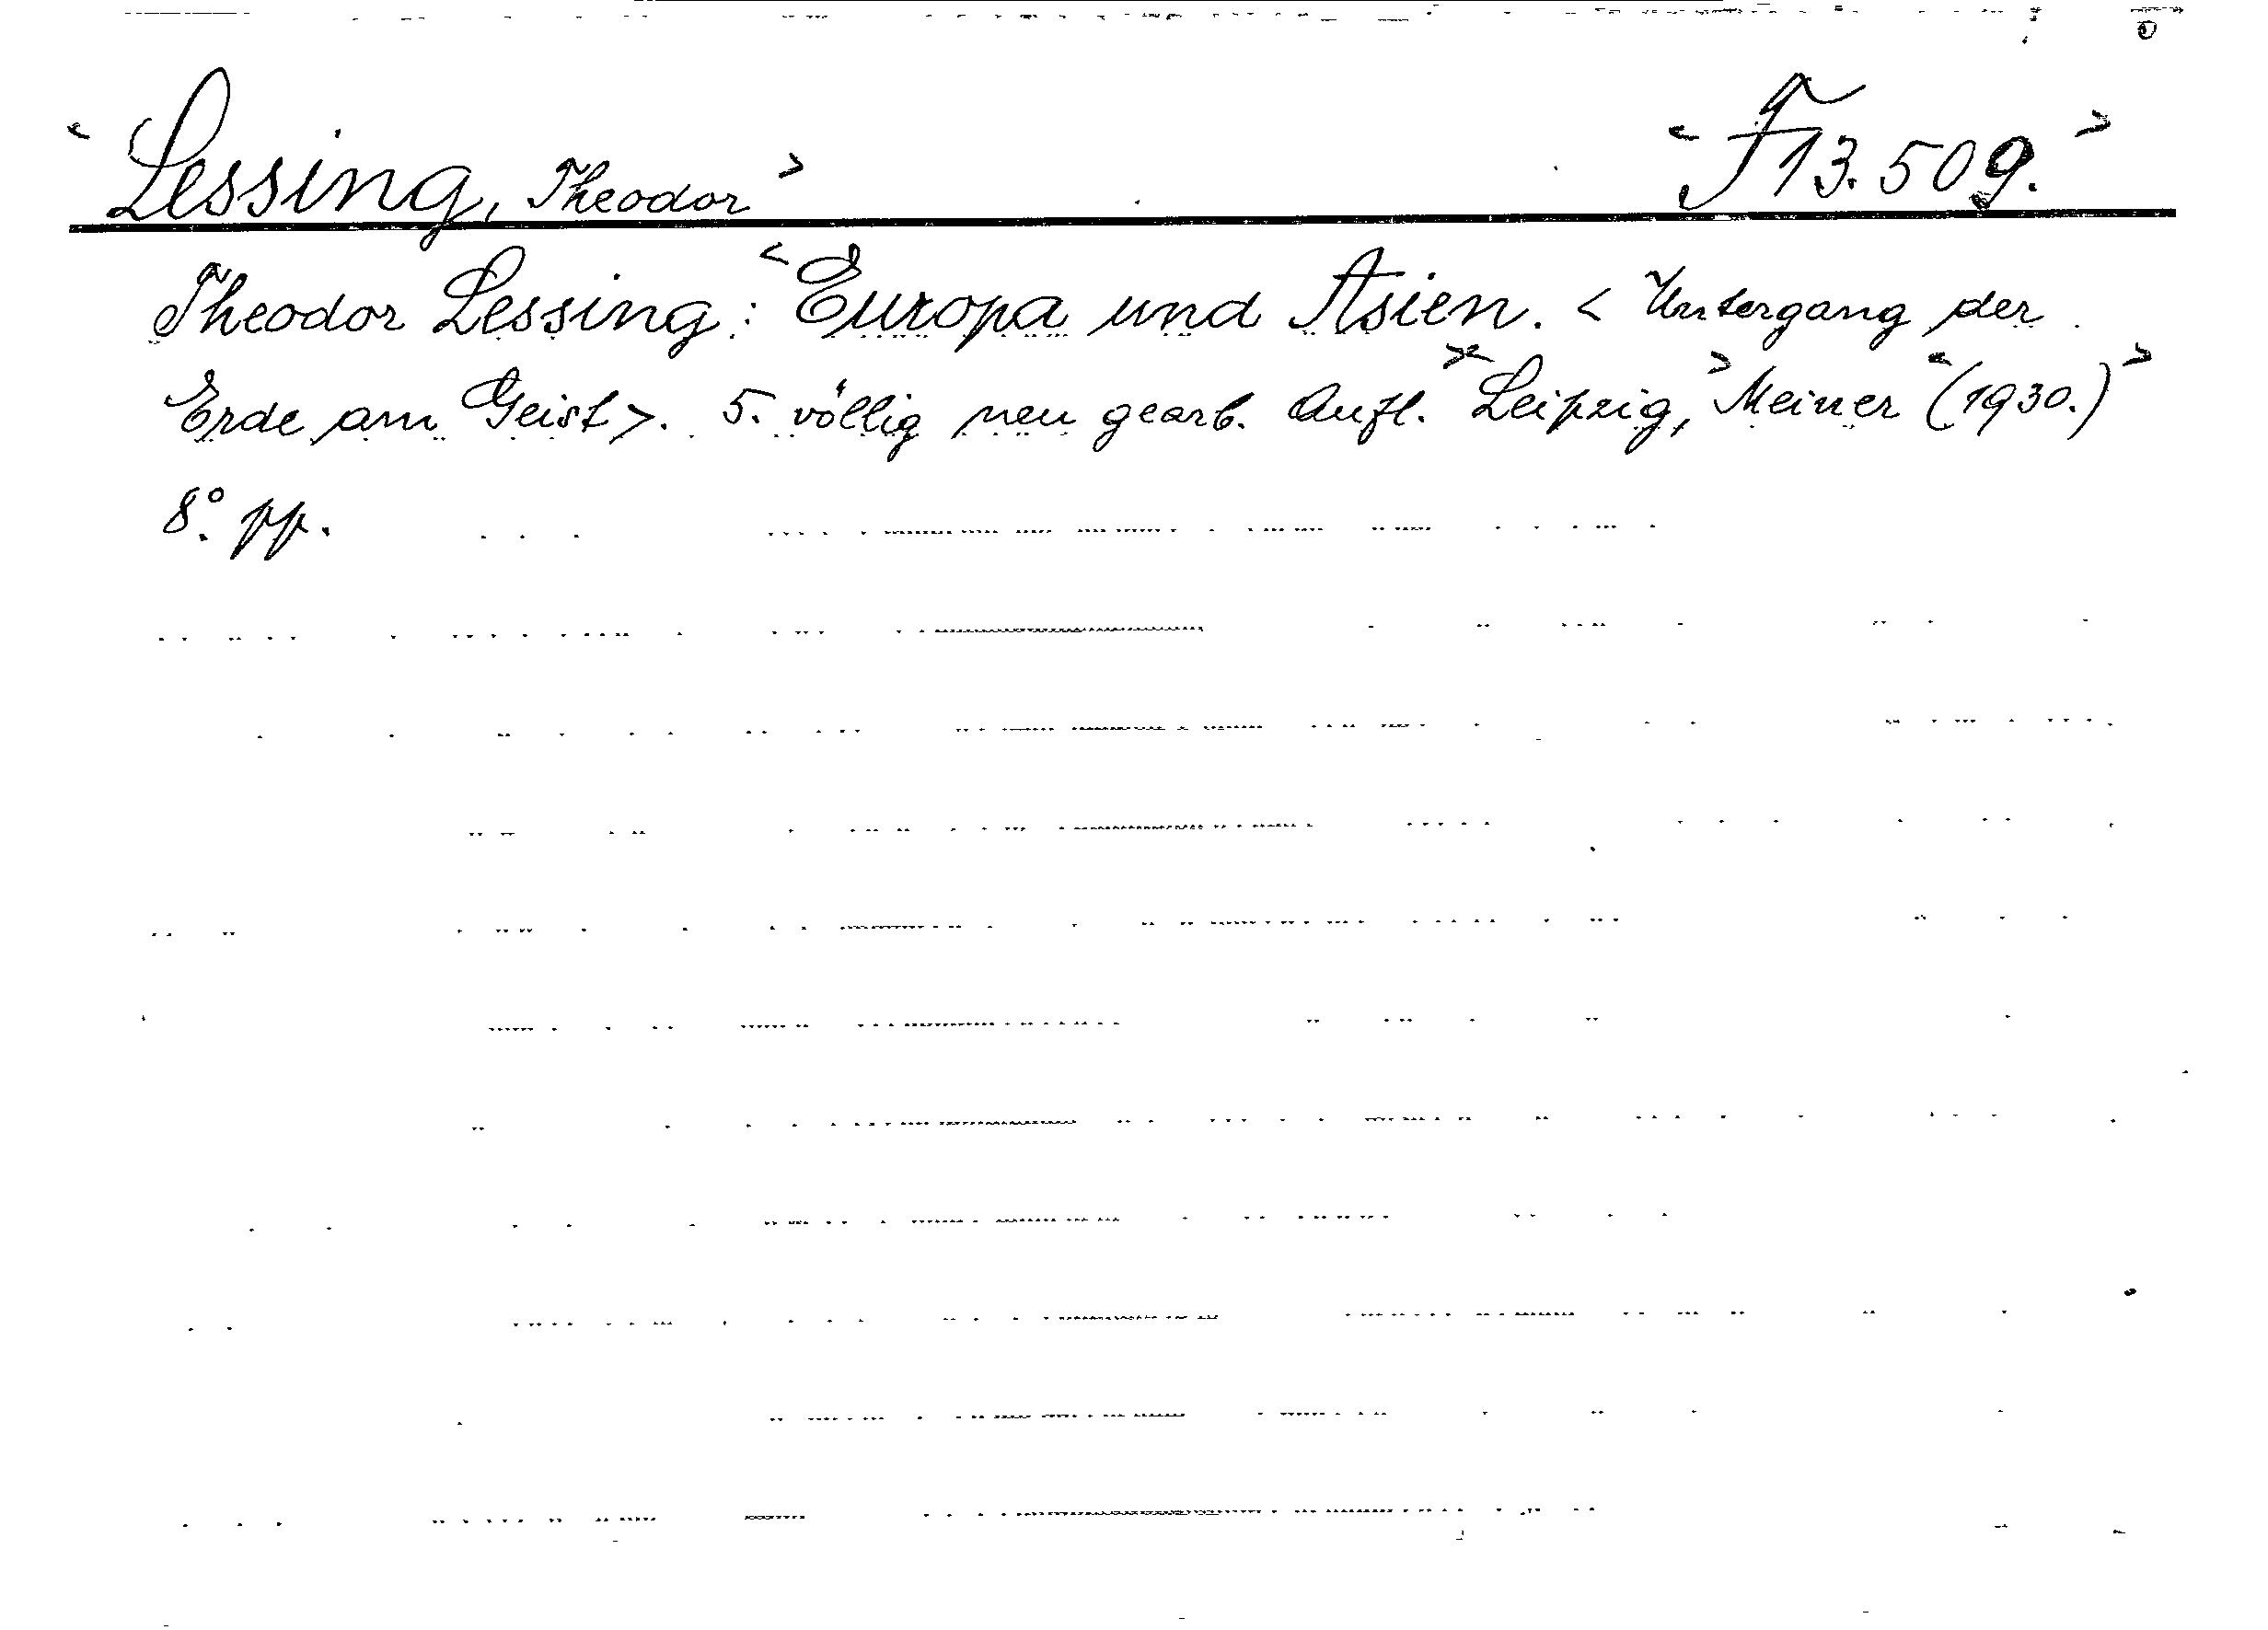 < Lessing, Theodor > < F 13.509. >
Theodor Lessing: < Europa und Asien. < Untergang der
Erde am Geist >. 5. völlig neu gearb. Aufl. >< Leipzig, > Meiner < (1930.) >
8°. pp.